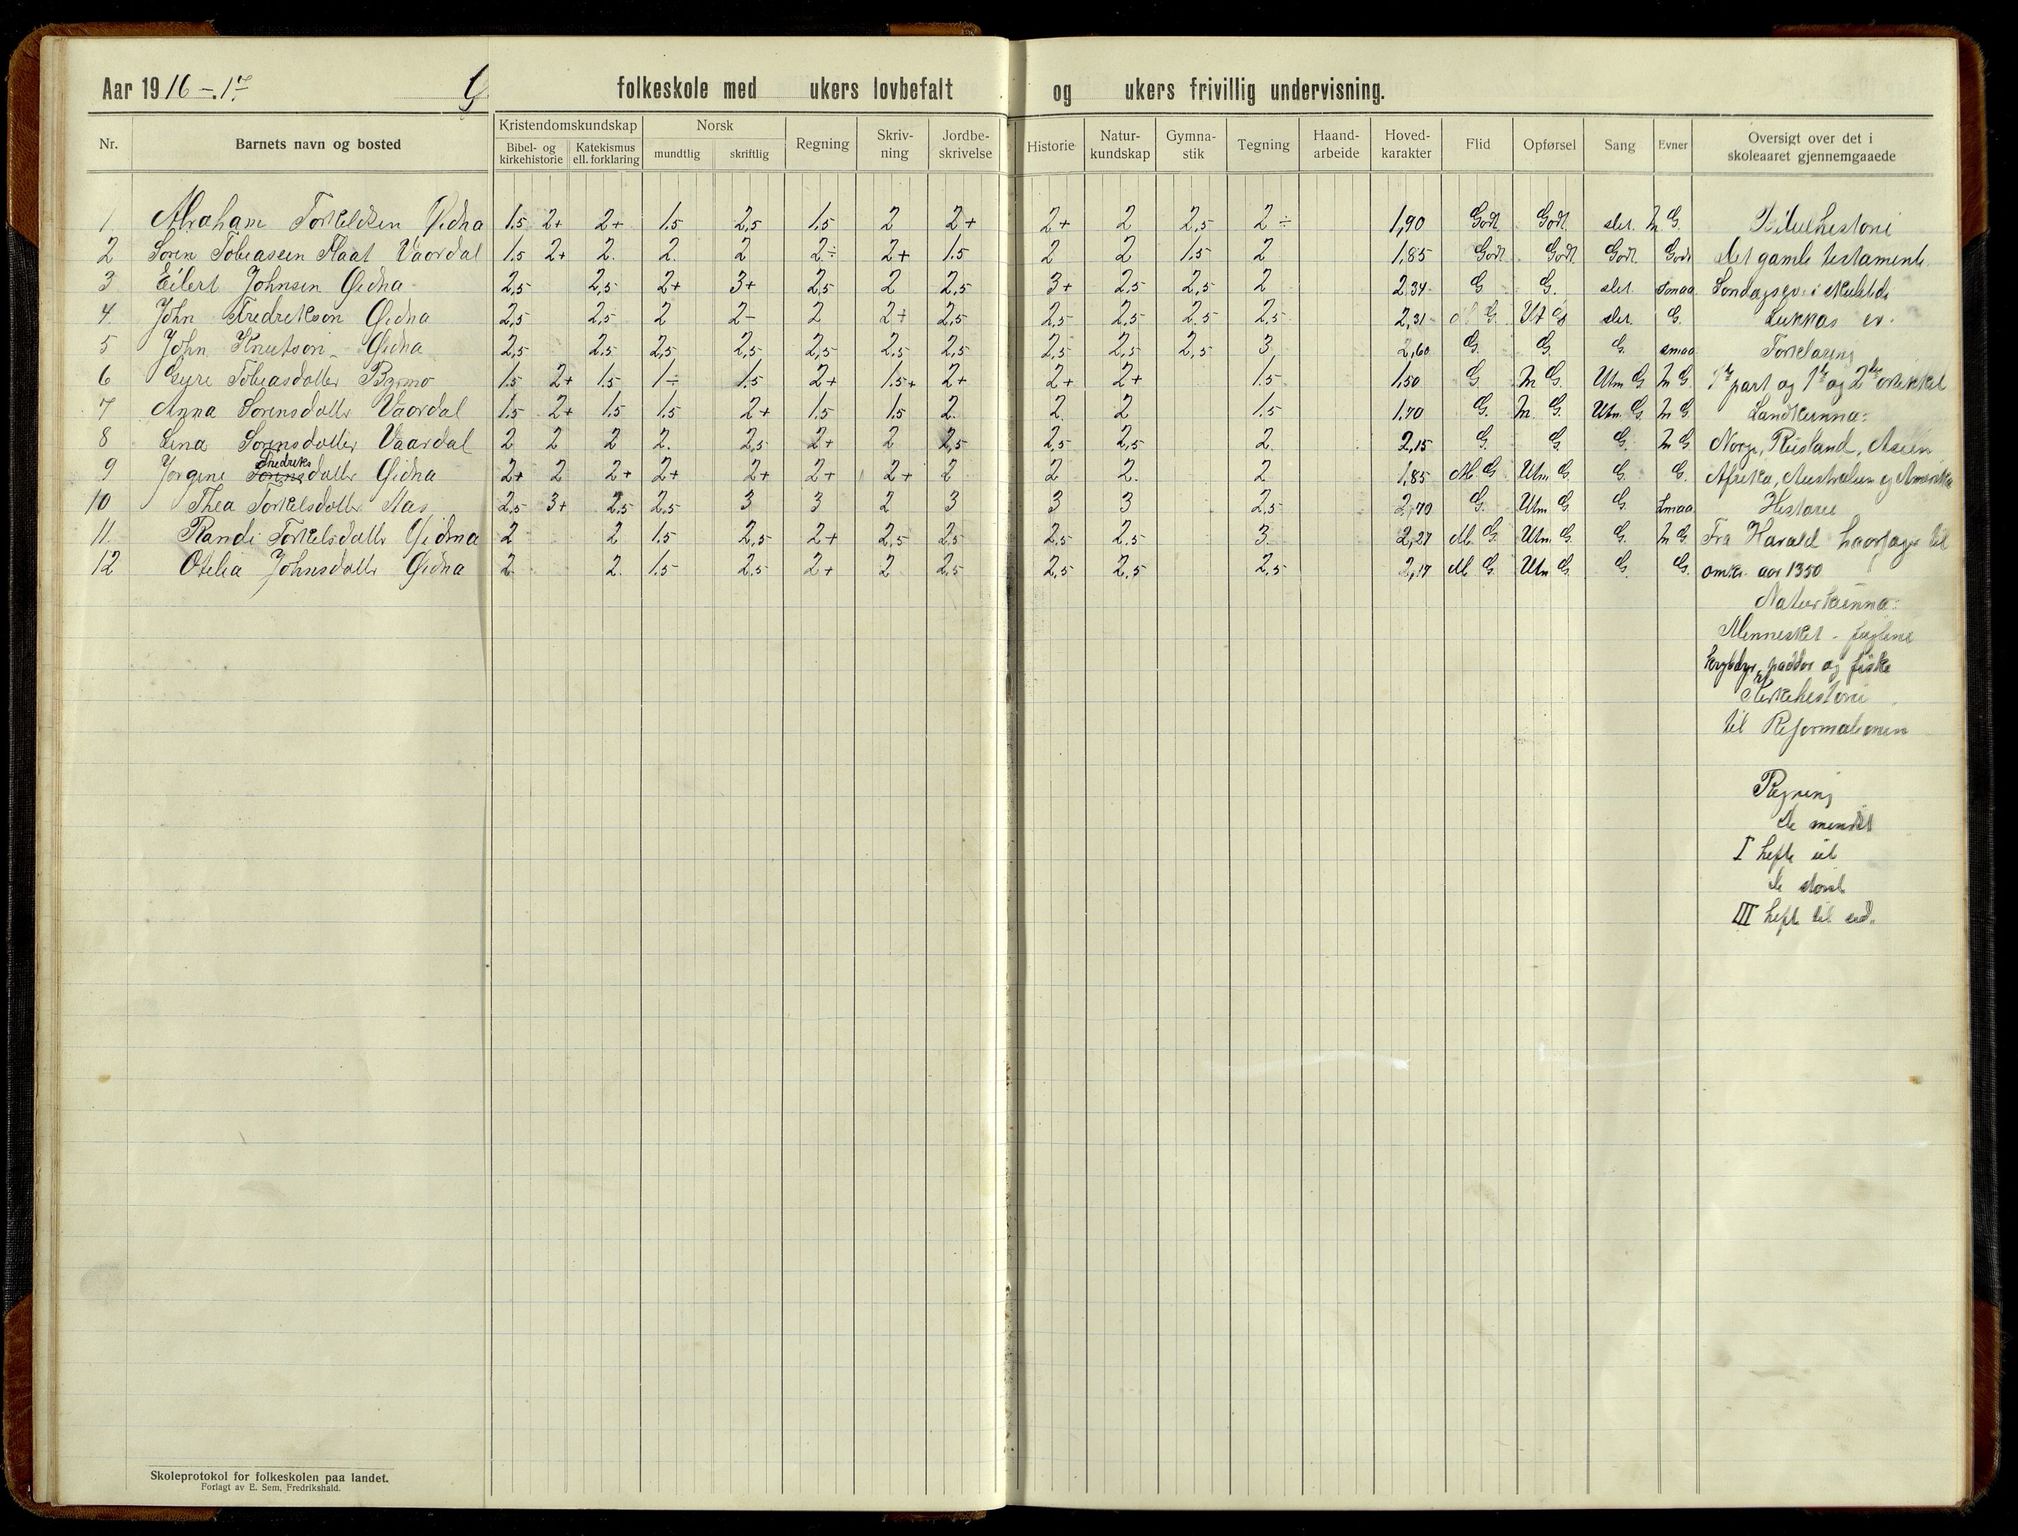 Aar 1916-17 folkeskole med ukers lovbefalt og ukers frivillig undervisning.
Nr. Barnets navn og bosted Kristendomskundskap Bibel- og kirkehistorie Katekismus ell. forklaring Norsk mundtlig skriftlig Regning Skriv-ning Jordbe-skrivelse Historie Natur-kundskap Gymna-stik Tegning Haand-arbeide Hoved-karakter Flid Opførsel Sang Evner Oversigt over det i skoleaaret gjennemgaaede
1 Abraham Torkeldsen Øidna 1.5 2+ 2+ 1.5 2,5 1.5 2 2+ 2+ 2 2,5 2÷ 1,90 Godt Godt slet M G. Bibelhistorie
2 Soren Tobiassen Staat Vaardal 1.5 2+ 2. 2. 2 2÷ 2+ 1.5 2 2 1.5 2 1,85 Godt Godt Godt Godt Det gamle testamente
3 Eilert Johnsen Øidna 2,5 2,5 2+ 3+ 2,5 2 2,5 3+ 2,5 2,5 2 2,34 G G. slet smaa Søndagsev. i
4 John Fredrikson Øidna 2,5 2,5 2 2- 2 2+ 2,5 2,5 2,5 2.5 2,5 2,31 M G Ut G slet G. Lukkas ev.
5 John Knutson Øidna 2,5 2.5 2,5 2,5 2,5 2,5 2,5 2,5 2,5 2,5 3 2,60 G. G. G. smaa Forklaring
6 Gyre Tobiasdotter Byrmo 1.5 2+ 1.5 1÷ 1.5 2+ 1.5+ 2+ 2+ 2+ 1.5 1.50 G M G. Utm G M G 1ste part og 1ste og 2den artikkel
7 Anna Sorensdotter Vaardal 1.5 2+ 1.5 1.5 2+ 1.5 1.5 2. 2. 2 1.5 1.70 G. M. G. Utm G M G. Landkunna:
8 Lina Sorensdotter Vaardal 2 2 2 2. 2,5 2+ 2 2,5 2,5 2,5 2. 2,15 G. G. G. M G Norge, Rusland, Asien
9 Jorgine Fredriksdotter Øidna 2+ 2 2+ 2+ 2+ 2+ 2+ 2 2 2. 2 1,85 M G Utm G. G. G. Afrika, Australien og Amerika
10 Thea Torkelsdotter Aas 2,5 3+ 2.5 2,5 3 3 2 3 3 3 2,5 2,70 G. Utm G. G. smaa Historie
11. Randi Torkelsdotter Øidna 2 2 1.5 2,5 2+ 2,5 2,5 2,5 2.5 3. 2,27 M. G. Utm G. G. M G Fra Harald haarfagre til
12 Otelia Johnsdotter Øidna 2 2. 1.5 2.5 2+ 2 2,5 2,5 2,5 2,5 2,17 M G Utm G. G. G. omkr. aar 1350
Naturkunna:
Mennesket - fuglene
krybdyr, padder og fiske
Kirkehistorie
til Reformationen
Regning
de minste
I hefte ut
de storste
III hefte til end.
Skoleprotokol for folkeskolen paa landet.
Forlagt av E. Sem, Fredrikshald.